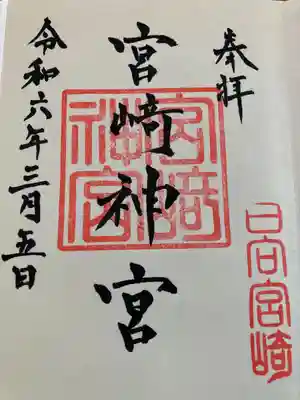 奉拝
日向宮崎
宮﨑神宮
宮崎神宮
令和六年三月五日